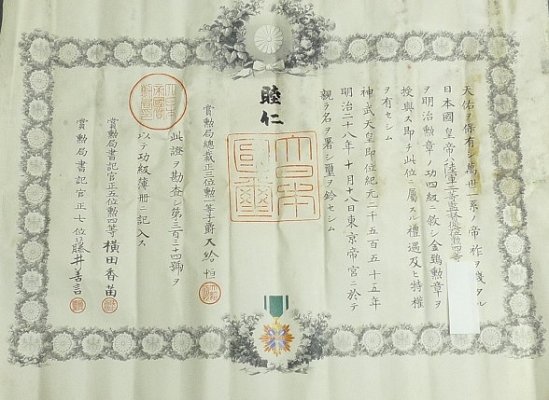 天佑ヲ保有シ萬世一系ノ帝祚ヲ踐タル
日本國皇帝ハ陸軍一等監督從五位勲四等
ヲ明治勲章ノ功四級ニ敘シ金鵄勲章ヲ
授與ス即チ此位ニ属スル禮遇及ヒ特權
ヲ有セシム
神武天皇即位紀元二千五百五十五年
明治二十八年十月十八日東京帝宮ニ於テ
親ラ名ヲ署シ璽ヲ鈐セシム
睦仁
大日本國璽
賞勲局総裁正三位勲一等子爵大給恒
此證ヲ勘査シ第三百二十四號ヲ
以テ功級簿冊ニ記入ス
賞勲局書記官正五位勲四等横田香苗
賞勲局書記官正七位藤井善言